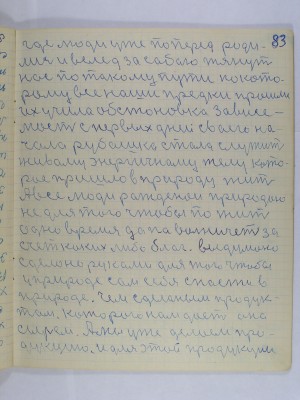 83
где люди уже поперед роди-
лися и вслед за собою тянут
нас по такому пути по кото-
рому все наши предки прошли
их учила обстоновка зависе-
мость с первых дней своего на-
чала рубашка стала служит
живому энергичному телу кото-
рое пришло в природу жит
А все люди рождены природою
не для того чтобы пожит
одно время да та
счет каких либо благ.
сделоно руками для того чтобы
у природе сам себя спасти в
природе. Чем сделаным продук-
том, которого нам дает она
сырем. А мы уже делаем про-
дукцию. и для этой продукции